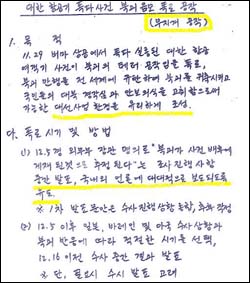 대한 항공기 폭파사건 북괴 음모 폭로 공작
(무지개 공작)
1. 목적
11.29 버마 상공에서 폭파 실종된 대한 항공
여객기 사건이 북괴의 테러 공작임을 폭로,
북괴 만행을 전 세계에 규탄하여 북괴를 위축시키고
국민들의 대북 경각심과 안보의식을 고취함으로써
가능한 대선사업 환경을 유리하게 조성.
다. 폭로 시기 및 방법
(1) 12.5경 외무부 장관 명의로 "북괴가 사건 배후에
개재된것으로 추정된다"는 조사 진행사항
중간 발표, 국내외 언론에 대대적으로 보도되도록
유도
※ 1차 발표 문안은 수사 진행 상황 봐서,
(2) 12.5 이후 일본, 바레인 및 미국 수사 상황과
북괴 반응에 따라 적절한 시기를 선택,
12.16 이전 수사 중간 결과 발표
※ 단, 필요시 수시 발표 고려